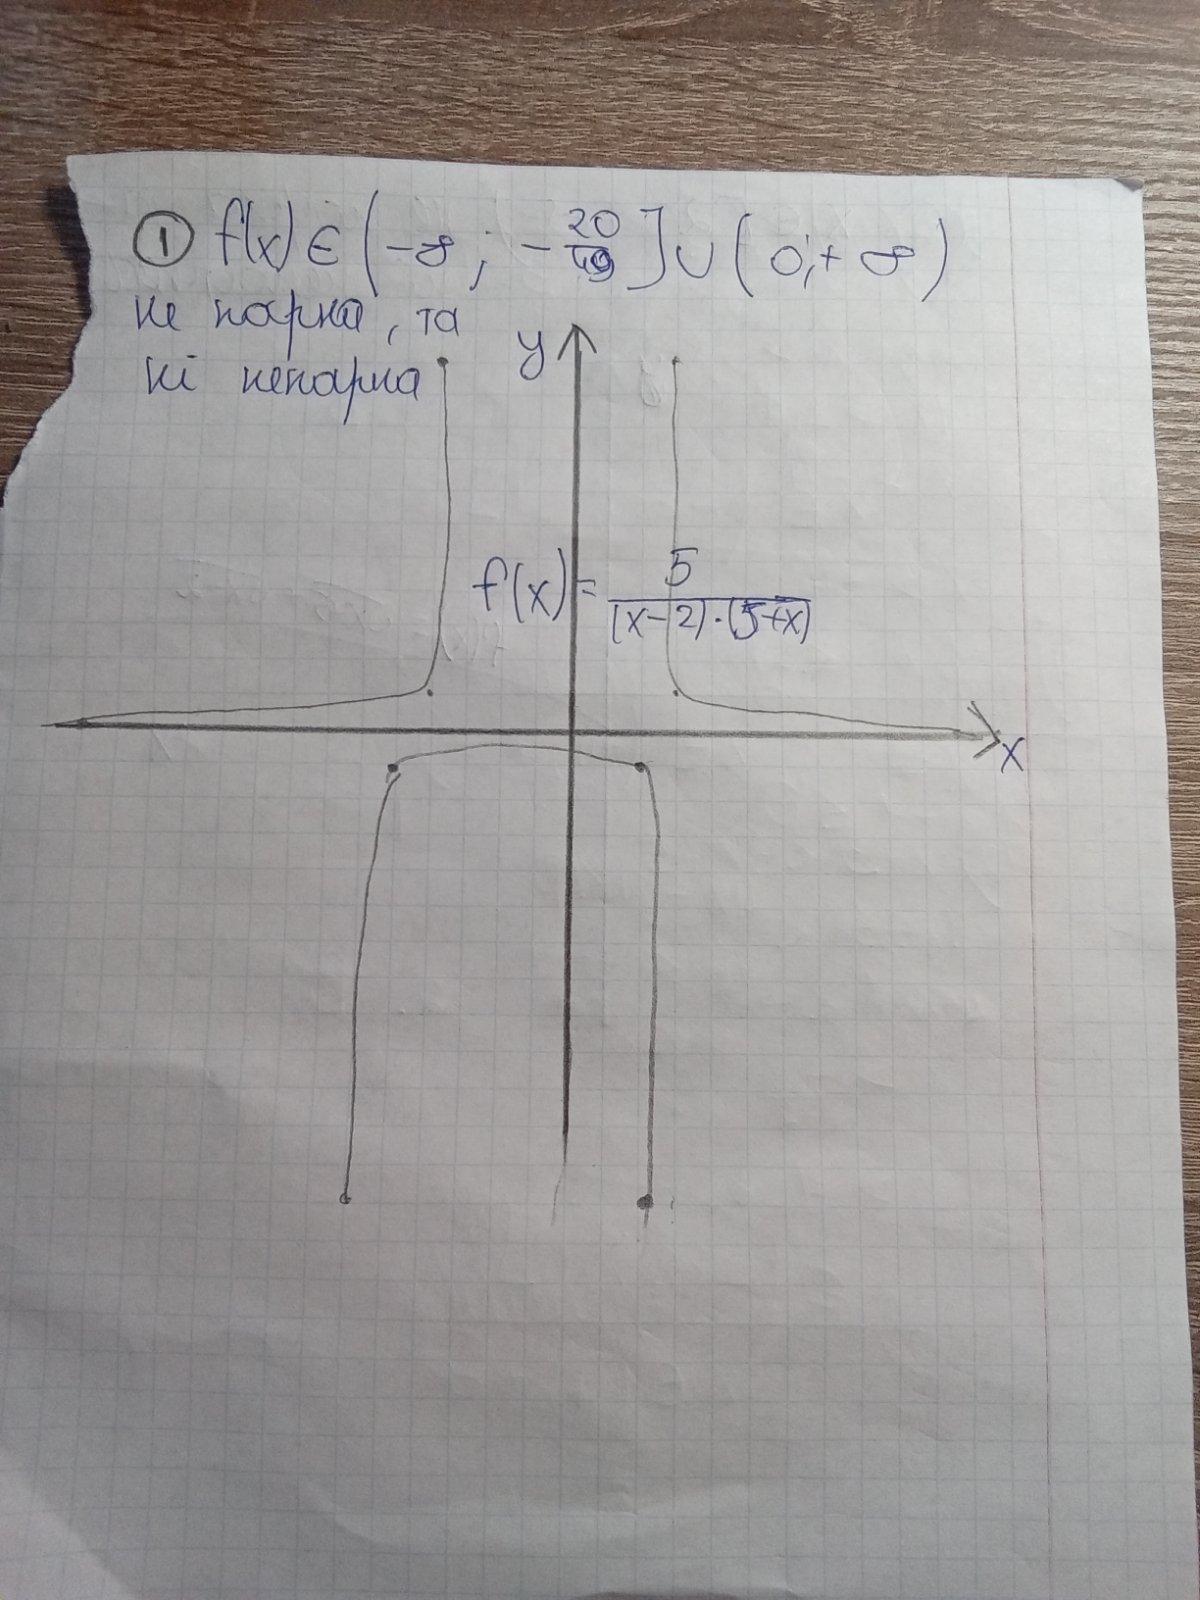 ① f(x) ∈ (-∞; -20/49] ∪ (0;+∞)
не парна, та
ні непарна
y
f(x) = 5/((x-2)·(5+x))
x